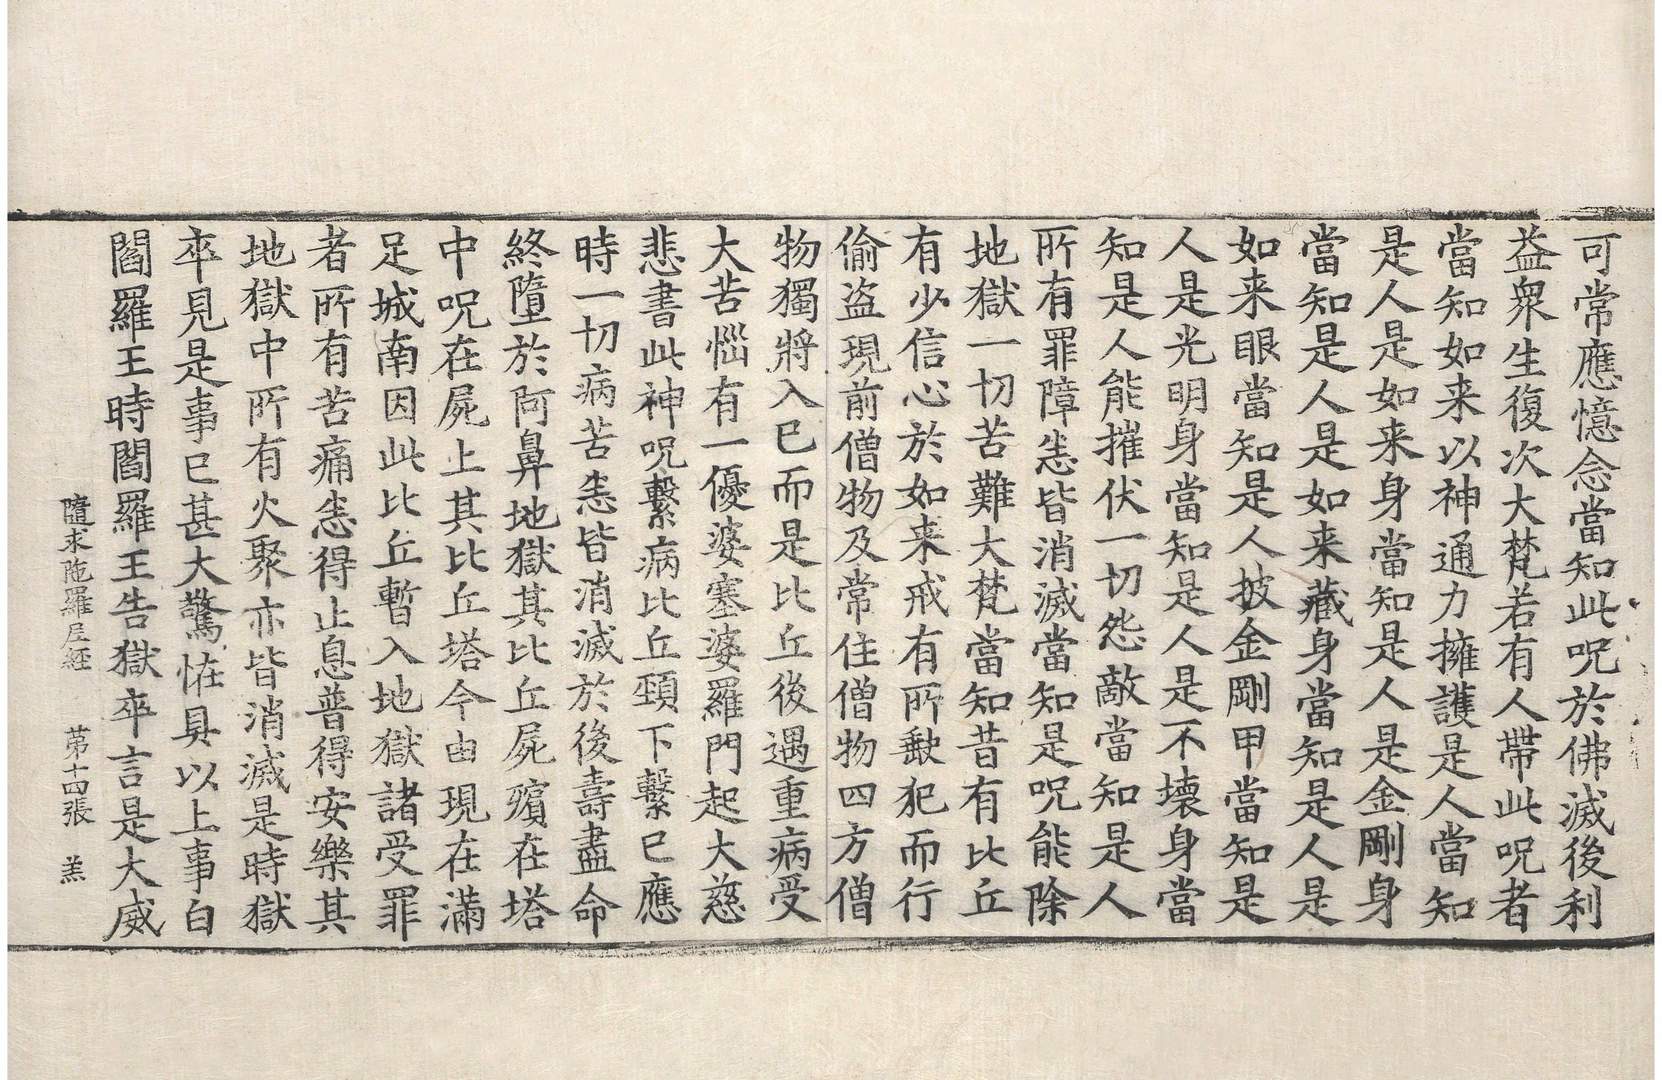 可常應憶念當知此呪於佛滅後利
益眾生復次大梵若有人帶此呪者
當知如来以神通力擁護是人當知
是人是如来身當知是人是金剛身
當知是人是如来藏身當知是人是
如来眼當知是人披金剛甲當知是
人是光明身當知是人是不壞身當
知是人能摧伏一切怨敵當知是人
所有罪障恙皆消滅當知是呪能除
地獄一切苦難大梵當知昔有比丘
有少信心於如来戒有所缺犯而行
偷盜現前僧物及常住僧物四方僧
物獨將入已而是比丘後遇重病受
大苦惱有一優婆塞婆羅門起大慈
悲書此神呪繫病比丘頸下繫已應
時一切病苦恙皆消滅於後壽盡命
終墮於阿鼻地獄其比丘屍殯在塔
中呪在屍上其比丘塔今由現在滿
足城南因此比丘暫入地獄諸受罪
者所有苦痛恙得止息普得安樂其
地獄中所有火聚亦皆消滅是時獄
卒見是事已甚大驚恠具以上事白
閻羅王時閻羅王告獄卒言是大威
隨求陁羅尼經 苐十四張 羔